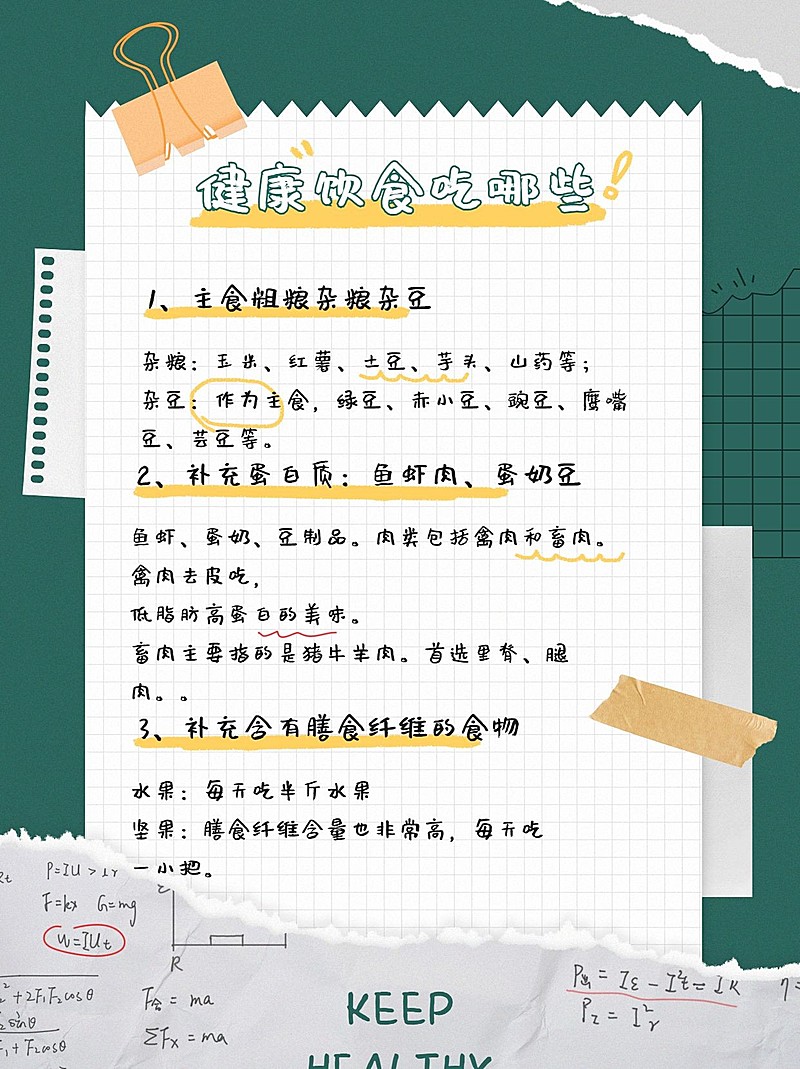 健康饮食吃哪些!
1、主食粗粮杂粮杂豆
杂粮：玉米、红薯、土豆、芋头、山药等；
杂豆：作为主食，绿豆、赤小豆、豌豆、鹰嘴
豆、芸豆等。
2、补充蛋白质：鱼虾肉、蛋奶豆
鱼虾、蛋奶、豆制品。肉类包括禽肉和畜肉。
禽肉去皮吃，
低脂肪高蛋白的美味。
畜肉主要指的是猪牛羊肉。首选里脊、腿
肉。。
3、补充含有膳食纤维的食物
水果：每天吃半斤水果
坚果：膳食纤维含量也非常高，每天吃
一小把。
P=IU>
F=kx G=mg
W=IUt
R
+2F₁F₂cosθ
F₁+F₂cosθ
F合=ma
ΣFx=ma
KEEP
HEALTHY
P出=Iε-I²r=IR
P₂=I²r